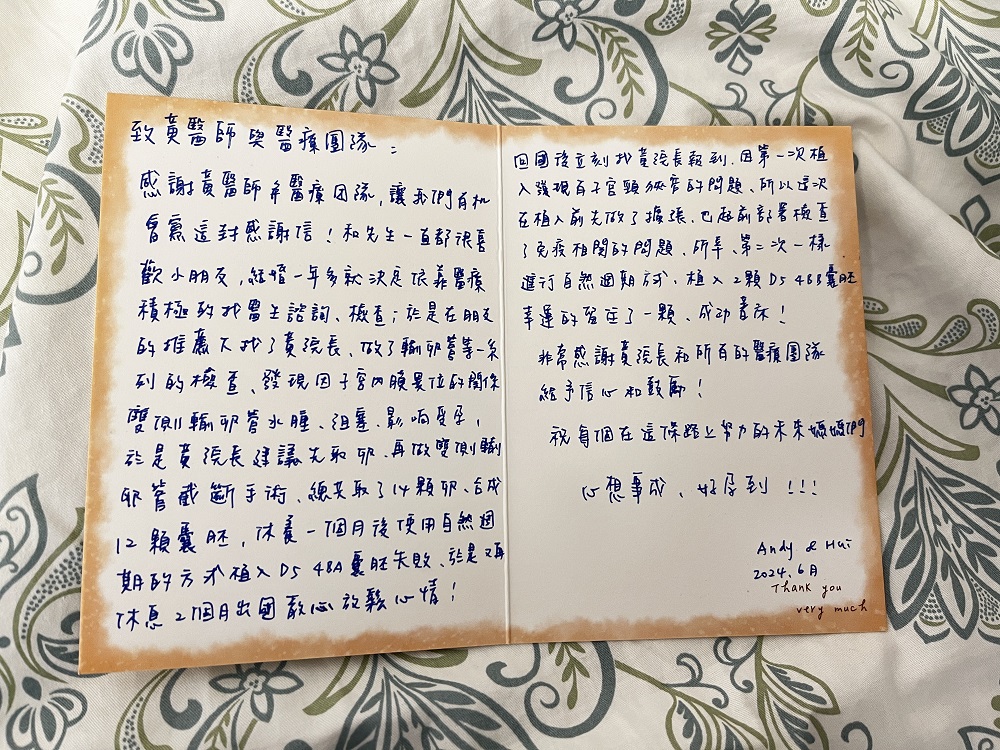 致黃醫師與醫療團隊：
感謝黃醫師和醫療团隊，讓我們有机
會寫這封感謝信！和先生一直都很喜
歡小朋友，結婚一年多就決定依靠醫療
積極的找醫生諮詢、檢查；於是在朋友
的推薦下找了黃院長、做了輸卵管等一系
列的檢查、發現因子宮內膜異位的關係
雙側輸卵管水腫、阻塞、影响受孕，
於是黃院長建議先取卵、再做雙側輸
卵管截斷手術、總共取了14顆卵、合成
12顆囊胚，休養一個月後使用自然週
期的方式植入D5 4BA囊胚失敗、於是又再
休息2個月出國散心放鬆心情！
回國後立刻找黃院長報到、因第一次植
入發現有子宮頸狹窄的問題、所以這次
在植入前先做了擴張、也超前部署檢查
了免疫相關的問題、所幸、第二次一樣
進行自然週期方式、植入2顆D5 4BB囊胚
幸運的留住了一顆、成功著床！
非常感謝黃院長和所有的醫療團隊
給予信心和鼓勵！
祝每個在這條路上努力的未來媽媽們
心想事成、好孕到！！！
Andy & Hui
2024.6月
Thank you
very much